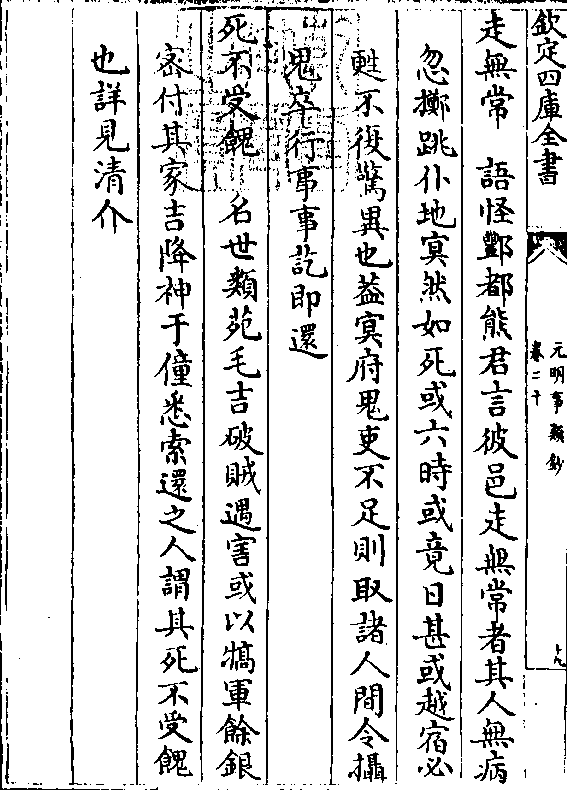 欽定四庫全書
元明事類鈔
卷二十
走無常　語怪酆都熊君言彼邑走無常者其人無病
忽擲跳仆地㝠然如死或六時或竟日甚或越宿必
甦不復驚異也葢㝠府鬼吏不足則取諸人間令攝
鬼卒行事事訖即還
死不受餽　名世類苑毛吉破賊遇害或以犒軍餘銀
宻付其家吉降神于僮悉索還之人謂其死不受餽
也詳見清介